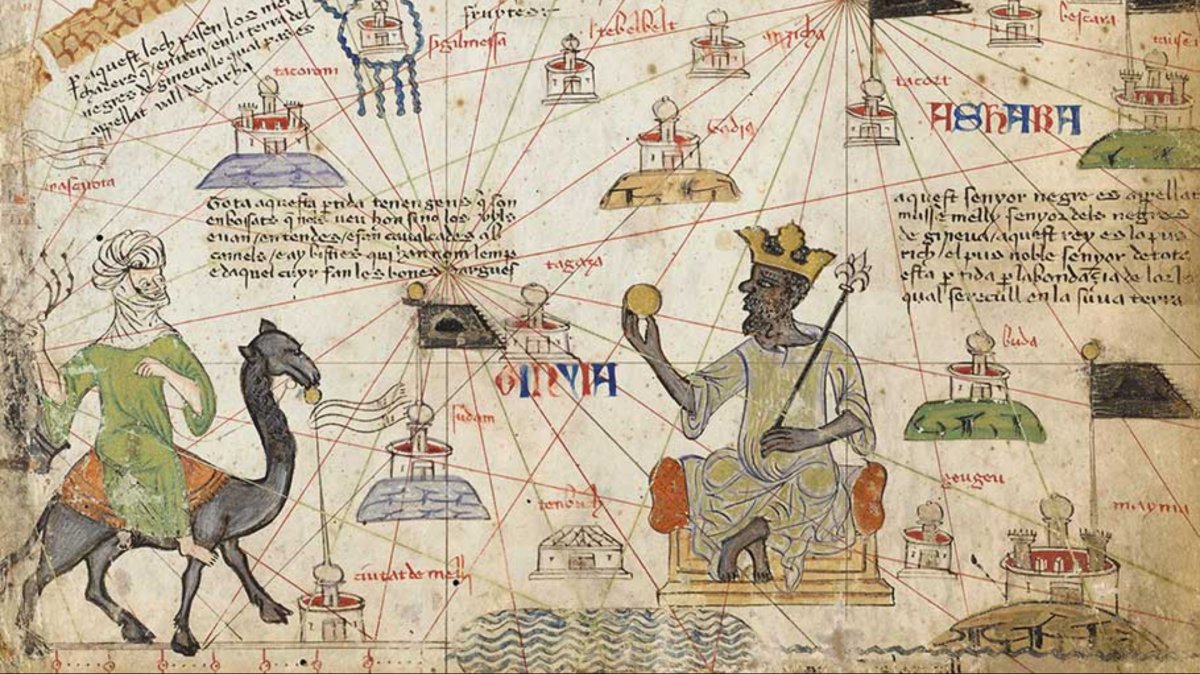 fruytes:
p aquest loch pasen los mer
chaders q̃ entren en la terra del
negres de gineua lo qual pas es
appellat vall de dacha
sigilmessa
tebelbelt
anzicha
bescara
tacorom
tacort
ASHARA
Tota aquesta ptida tenen gens q̃ son
enbossats q̃ nols veu hom sino los vyls
e van en tendes e fan caualcades ab
camels e ay bisties qui han nom lemp
e daquel cuyr fan les bones dargues
aquest senyor negre es appellat
musse melly senyor dels negres
de gineua aquest rey es lo pus
rich el pus noble senyor de tota
esta ptida p labondãcia de lor lo
qual se recull en la suua terra
tagaza
GINYIA
buda
sudam
tenbuch
geugeu
mayma
ciutat de melly